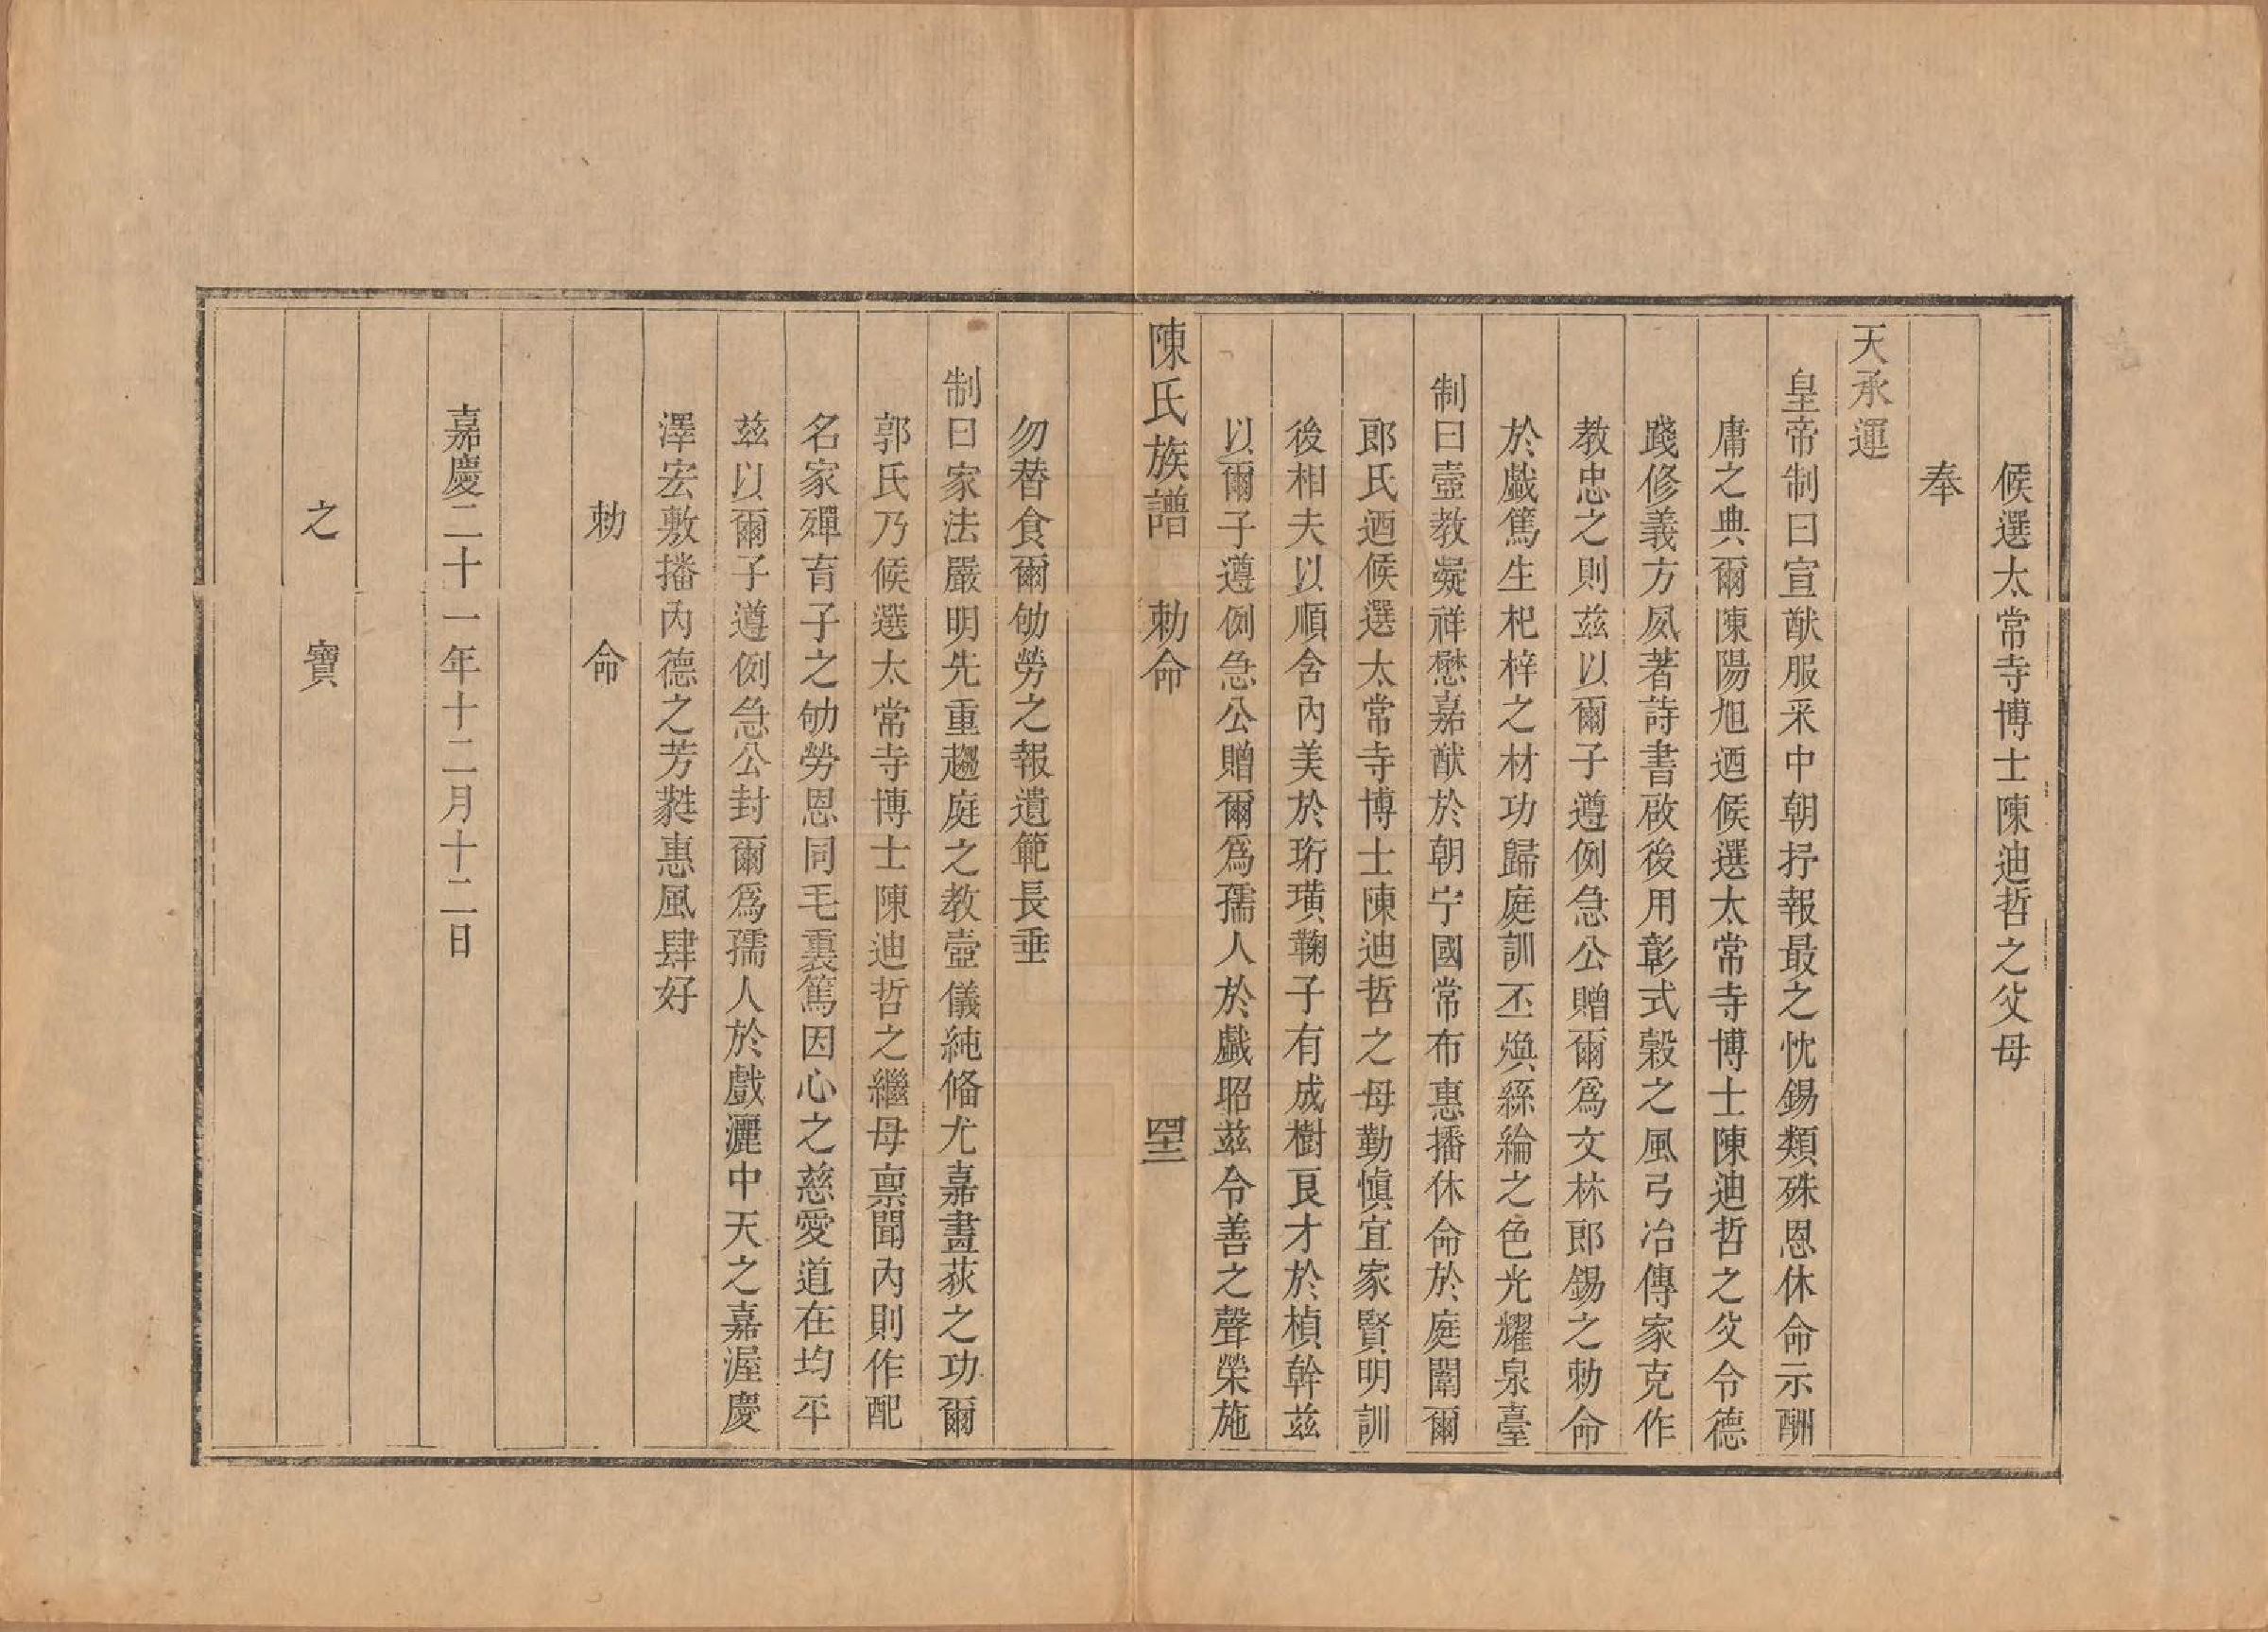 候選太常寺博士陳迪哲之父母
奉
天承運
皇帝制曰宣猷服采中朝抒報最之忱錫類殊恩休命示酬
庸之典爾陳陽旭迺候選太常寺博士陳迪哲之父令德
踐修義方夙著詩書啟後用彰式穀之風弓冶傳家克作
教忠之則茲以爾子遵例急公贈爾爲文林郎錫之勅命
於戲篤生杞梓之材功歸庭訓丕煥絲綸之色光耀泉臺
制曰壼教凝祥懋嘉猷於朝宁國常布惠播休命於庭闈爾
郎氏迺候選太常寺博士陳迪哲之母勤愼宜家賢明訓
後相夫以順含內美於珩璜鞠子有成樹良才於楨幹茲
以爾子遵例急公贈爾爲孺人於戲昭茲令善之聲榮施
陳氏族譜　勅命　四十二
勿替食爾劬勞之報遺範長垂
制曰家法嚴明先重趨庭之教壼儀純脩尤嘉畫荻之功爾
郭氏乃候選太常寺博士陳迪哲之繼母禀聞內則作配
名家殫育子之劬勞恩同毛裏篤因心之慈愛道在均平
茲以爾子遵例急公封爾爲孺人於戲灑中天之嘉渥慶
澤宏敷播內德之芳蕤惠風肆好
勅　命
嘉慶二十一年十二月十二日
之　寶